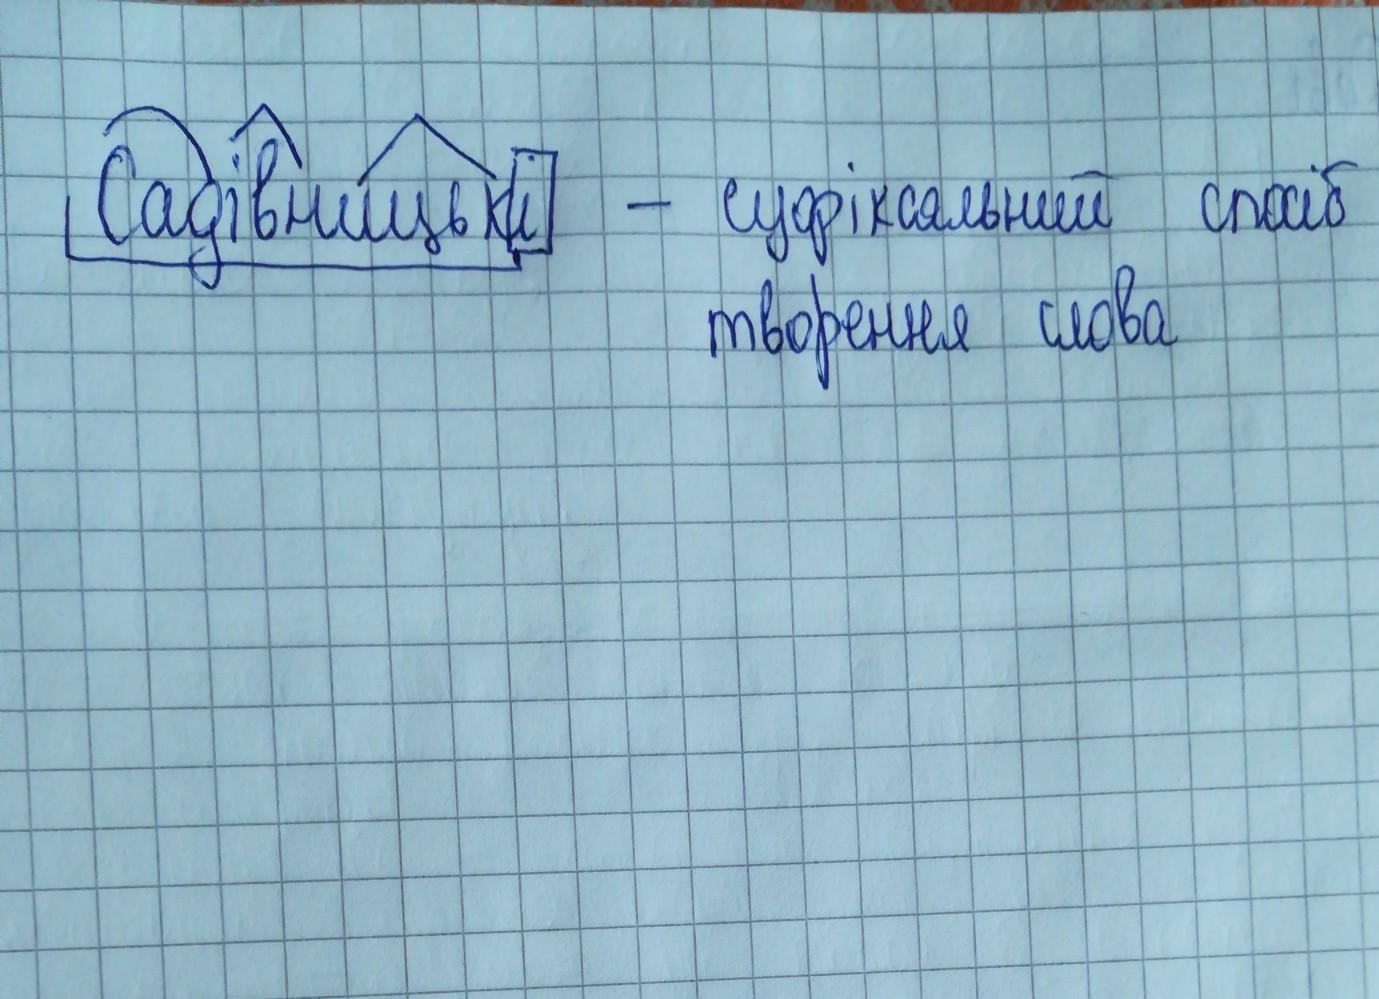 Садівницькі – суфіксальний спосіб
творення слова